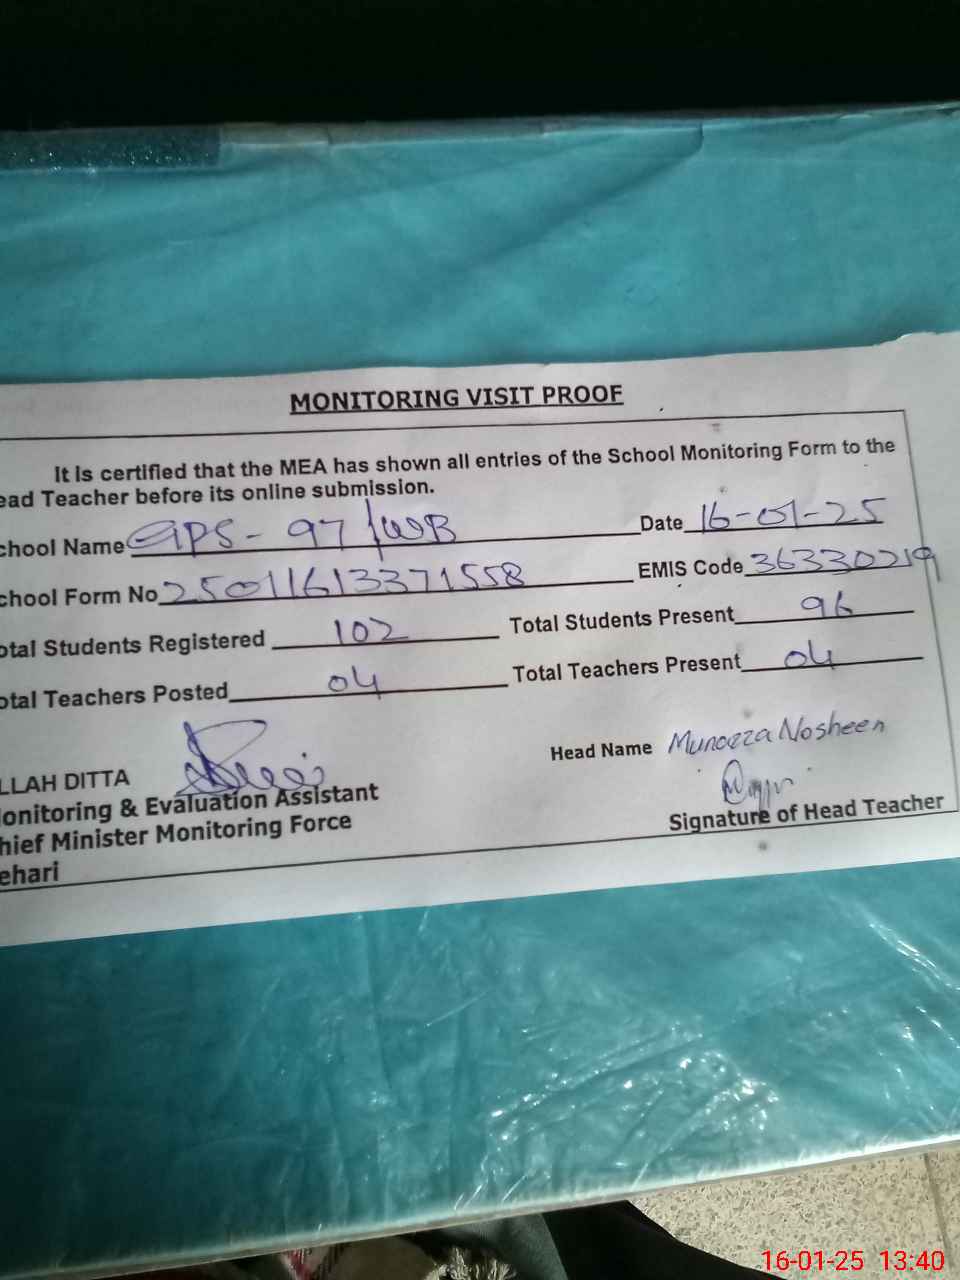 MONITORING VISIT PROOF
It is certified that the MEA has shown all entries of the School Monitoring Form to the
ead Teacher before its online submission.
chool Name GPS- 97/WB Date 16-01-25
chool Form No 25011613371558 EMIS Code 36330219
otal Students Registered 102 Total Students Present 96
otal Teachers Posted 04 Total Teachers Present 04
Head Name Munazza Nosheen
LLAH DITTA
onitoring & Evaluation Assistant
hief Minister Monitoring Force
Signature of Head Teacher
ehari
16-01-25 13:40